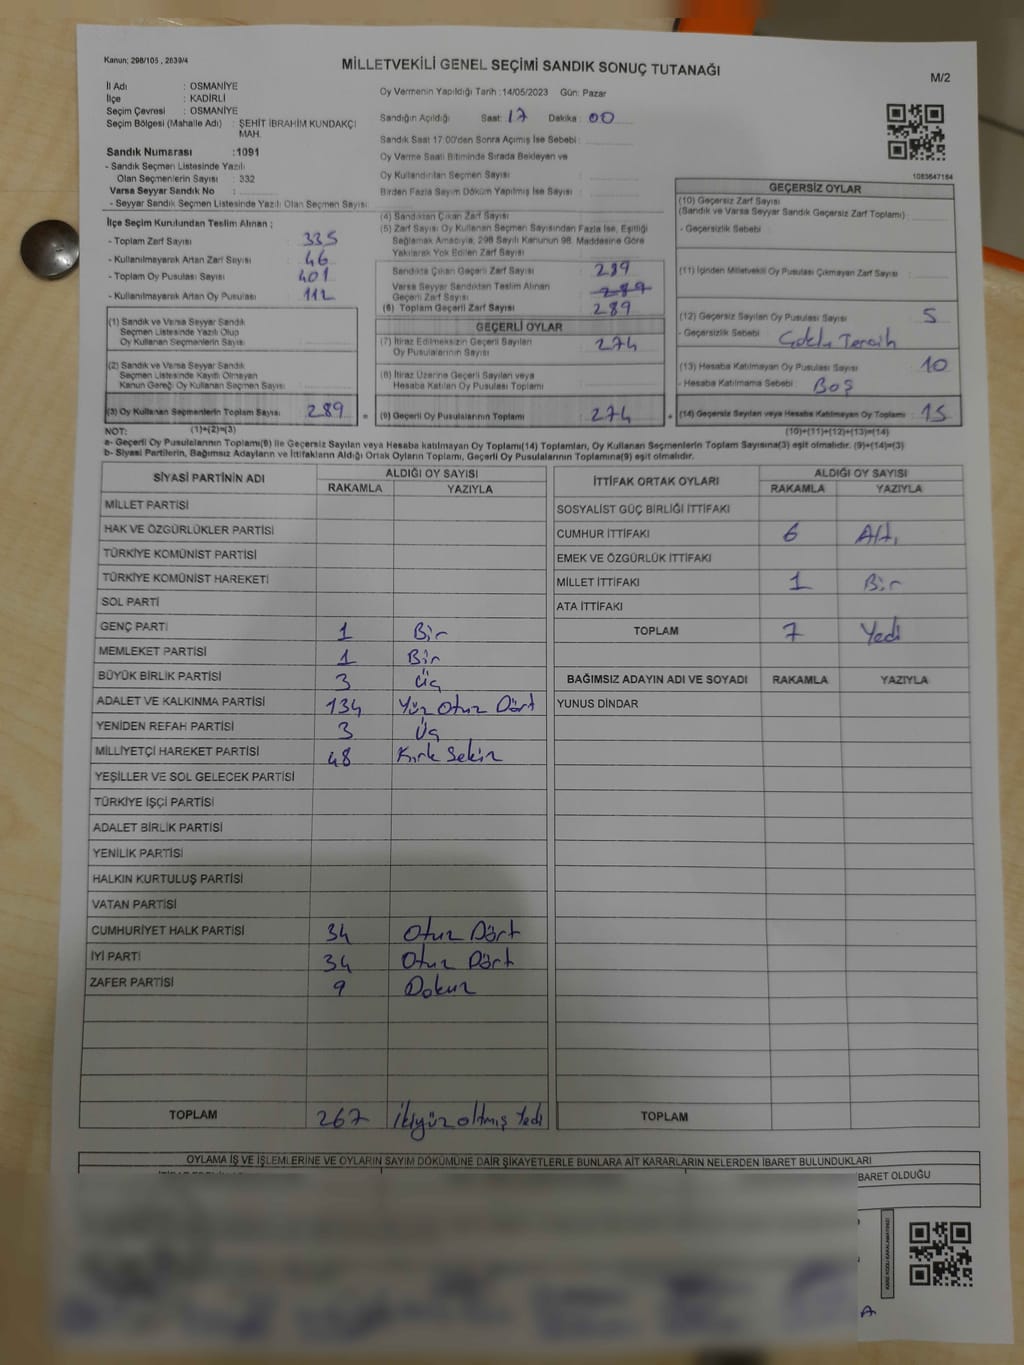 Kanun: 298/105 , 2839/4
MİLLETVEKİLİ GENEL SEÇİMİ SANDIK SONUÇ TUTANAĞI
M/2
İl Adı : OSMANİYE
İlçe : KADİRLİ
Seçim Çevresi : OSMANİYE
Seçim Bölgesi (Mahalle Adı) : ŞEHİT İBRAHİM KUNDAKÇI MAH.
Sandık Numarası :1091
- Sandık Seçmen Listesinde Yazılı
Olan Seçmenlerin Sayısı : 332
Varsa Seyyar Sandık No :
- Seyyar Sandık Seçmen Listesinde Yazılı Olan Seçmen Sayısı:
İlçe Seçim Kurulundan Teslim Alınan ;
- Toplam Zarf Sayısı : 335
- Kullanılmayarak Artan Zarf Sayısı : 46
- Toplam Oy Pusulası Sayısı : 401
- Kullanılmayarak Artan Oy Pusulası : 112
(1) Sandık ve Varsa Seyyar Sandık
Seçmen Listesinde Yazılı Olup
Oy Kullanan Seçmenlerin Sayısı :
(2) Sandık ve Varsa Seyyar Sandık
Seçmen Listesinde Kayıtlı Olmayan
Kanun Gereği Oy Kullanan Seçmen Sayısı :
(3) Oy Kullanan Seçmenlerin Toplam Sayısı : 289
Oy Vermenin Yapıldığı Tarih :14/05/2023 Gün: Pazar
Sandığın Açıldığı Saat: 17 Dakika : 00
Sandık Saat 17:00'den Sonra Açılmış İse Sebebi :
Oy Verme Saati Bitiminde Sırada Bekleyen ve
Oy Kullandırılan Seçmen Sayısı :
Birden Fazla Sayım Döküm Yapılmış İse Sayısı :
(4) Sandıktan Çıkan Zarf Sayısı :
(5) Zarf Sayısı Oy Kullanan Seçmen Sayısından Fazla İse, Eşitliği
Sağlamak Amacıyla, 298 Sayılı Kanunun 98. Maddesine Göre
Yakılarak Yok Edilen Zarf Sayısı :
Sandıkta Çıkan Geçerli Zarf Sayısı : 289
Varsa Seyyar Sandıktan Teslim Alınan
Geçerli Zarf Sayısı : 289
(6) Toplam Geçerli Zarf Sayısı : 289
GEÇERLİ OYLAR
(7) İtiraz Edilmeksizin Geçerli Sayılan
Oy Pusulalarının Sayısı : 274
(8) İtiraz Üzerine Geçerli Sayılan veya
Hesaba Katılan Oy Pusulası Toplamı :
= (9) Geçerli Oy Pusulalarının Toplamı : 274
1083647184
GEÇERSİZ OYLAR
(10) Geçersiz Zarf Sayısı
(Sandık ve Varsa Seyyar Sandık Geçersiz Zarf Toplamı) :
- Geçersizlik Sebebi :
(11) İçinden Milletvekili Oy Pusulası Çıkmayan Zarf Sayısı :
(12) Geçersiz Sayılan Oy Pusulası Sayısı : 5
- Geçersizlik Sebebi : Çoklu Tercih
(13) Hesaba Katılmayan Oy Pusulası Sayısı : 10
- Hesaba Katılmama Sebebi : Boş
+ (14) Geçersiz Sayılan veya Hesaba Katılmayan Oy Toplamı : 15
NOT: (1)+(2)=(3) (10)+(11)+(12)+(13)=(14)
a- Geçerli Oy Pusulalarının Toplam(9) ile Geçersiz Sayılan veya Hesaba katılmayan Oy Toplamı(14) Toplamları, Oy Kullanan Seçmenlerin Toplam Sayısına(3) eşit olmalıdır. (9)+(14)=(3)
b- Siyasi Partilerin, Bağımsız Adayların ve İttifakların Aldığı Ortak Oyların Toplamı, Geçerli Oy Pusulalarının Toplamına(9) eşit olmalıdır.
SİYASİ PARTİNİN ADI ALDIĞI OY SAYISI
RAKAMLA YAZIYLA
MİLLET PARTİSİ
HAK VE ÖZGÜRLÜKLER PARTİSİ
TÜRKİYE KOMÜNİST PARTİSİ
TÜRKİYE KOMÜNİST HAREKETİ
SOL PARTİ
GENÇ PARTİ 1 Bir
MEMLEKET PARTİSİ 1 Bir
BÜYÜK BİRLİK PARTİSİ 3 Üç
ADALET VE KALKINMA PARTİSİ 134 Yüz Otuz Dört
YENİDEN REFAH PARTİSİ 3 Üç
MİLLİYETÇİ HAREKET PARTİSİ 48 Kırk Sekiz
YEŞİLLER VE SOL GELECEK PARTİSİ
TÜRKİYE İŞÇİ PARTİSİ
ADALET BİRLİK PARTİSİ
YENİLİK PARTİSİ
HALKIN KURTULUŞ PARTİSİ
VATAN PARTİSİ
CUMHURİYET HALK PARTİSİ 34 Otuz Dört
İYİ PARTİ 34 Otuz Dört
ZAFER PARTİSİ 9 Dokuz
TOPLAM 267 İkiyüz altmış Yedi
İTTİFAK ORTAK OYLARI ALDIĞI OY SAYISI
RAKAMLA YAZIYLA
SOSYALİST GÜÇ BİRLİĞİ İTTİFAKI
CUMHUR İTTİFAKI 6 Altı
EMEK VE ÖZGÜRLÜK İTTİFAKI
MİLLET İTTİFAKI 1 Bir
ATA İTTİFAKI
TOPLAM 7 Yedi
BAĞIMSIZ ADAYIN ADI VE SOYADI RAKAMLA YAZIYLA
YUNUS DİNDAR
TOPLAM
OYLAMA İŞ VE İŞLEMLERİNE VE OYLARIN SAYIM DÖKÜMÜNE DAİR ŞİKAYETLERLE BUNLARA AİT KARARLARIN NELERDEN İBARET BULUNDUKLARI
BARET OLDUĞU